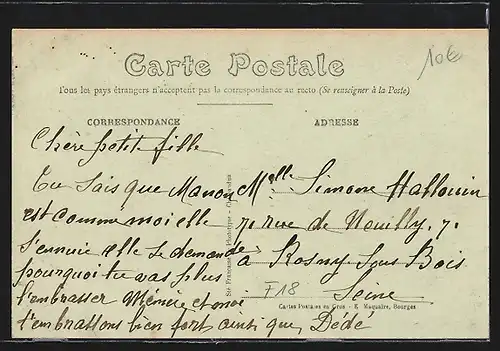 Carte Postale
10€
Tous les pays étrangers n'acceptent pas la correspondance au recto (Se renseigner à la Poste)
CORRESPONDANCE
ADRESSE
Chère petit fille
Tu sais que Manon
est comme moi elle
s'ennuie elle se demande
pourquoi tu vas plus
l'embrasser Mémée et moi
t'embrassons bien fort ainsi que Dédé
Melle Simone Hallouin
7 rue de Neuilly. 7.
à Rosny Sous Bois
Seine
F18
Cartes Postales en Gros - E. Maquaire, Bourges